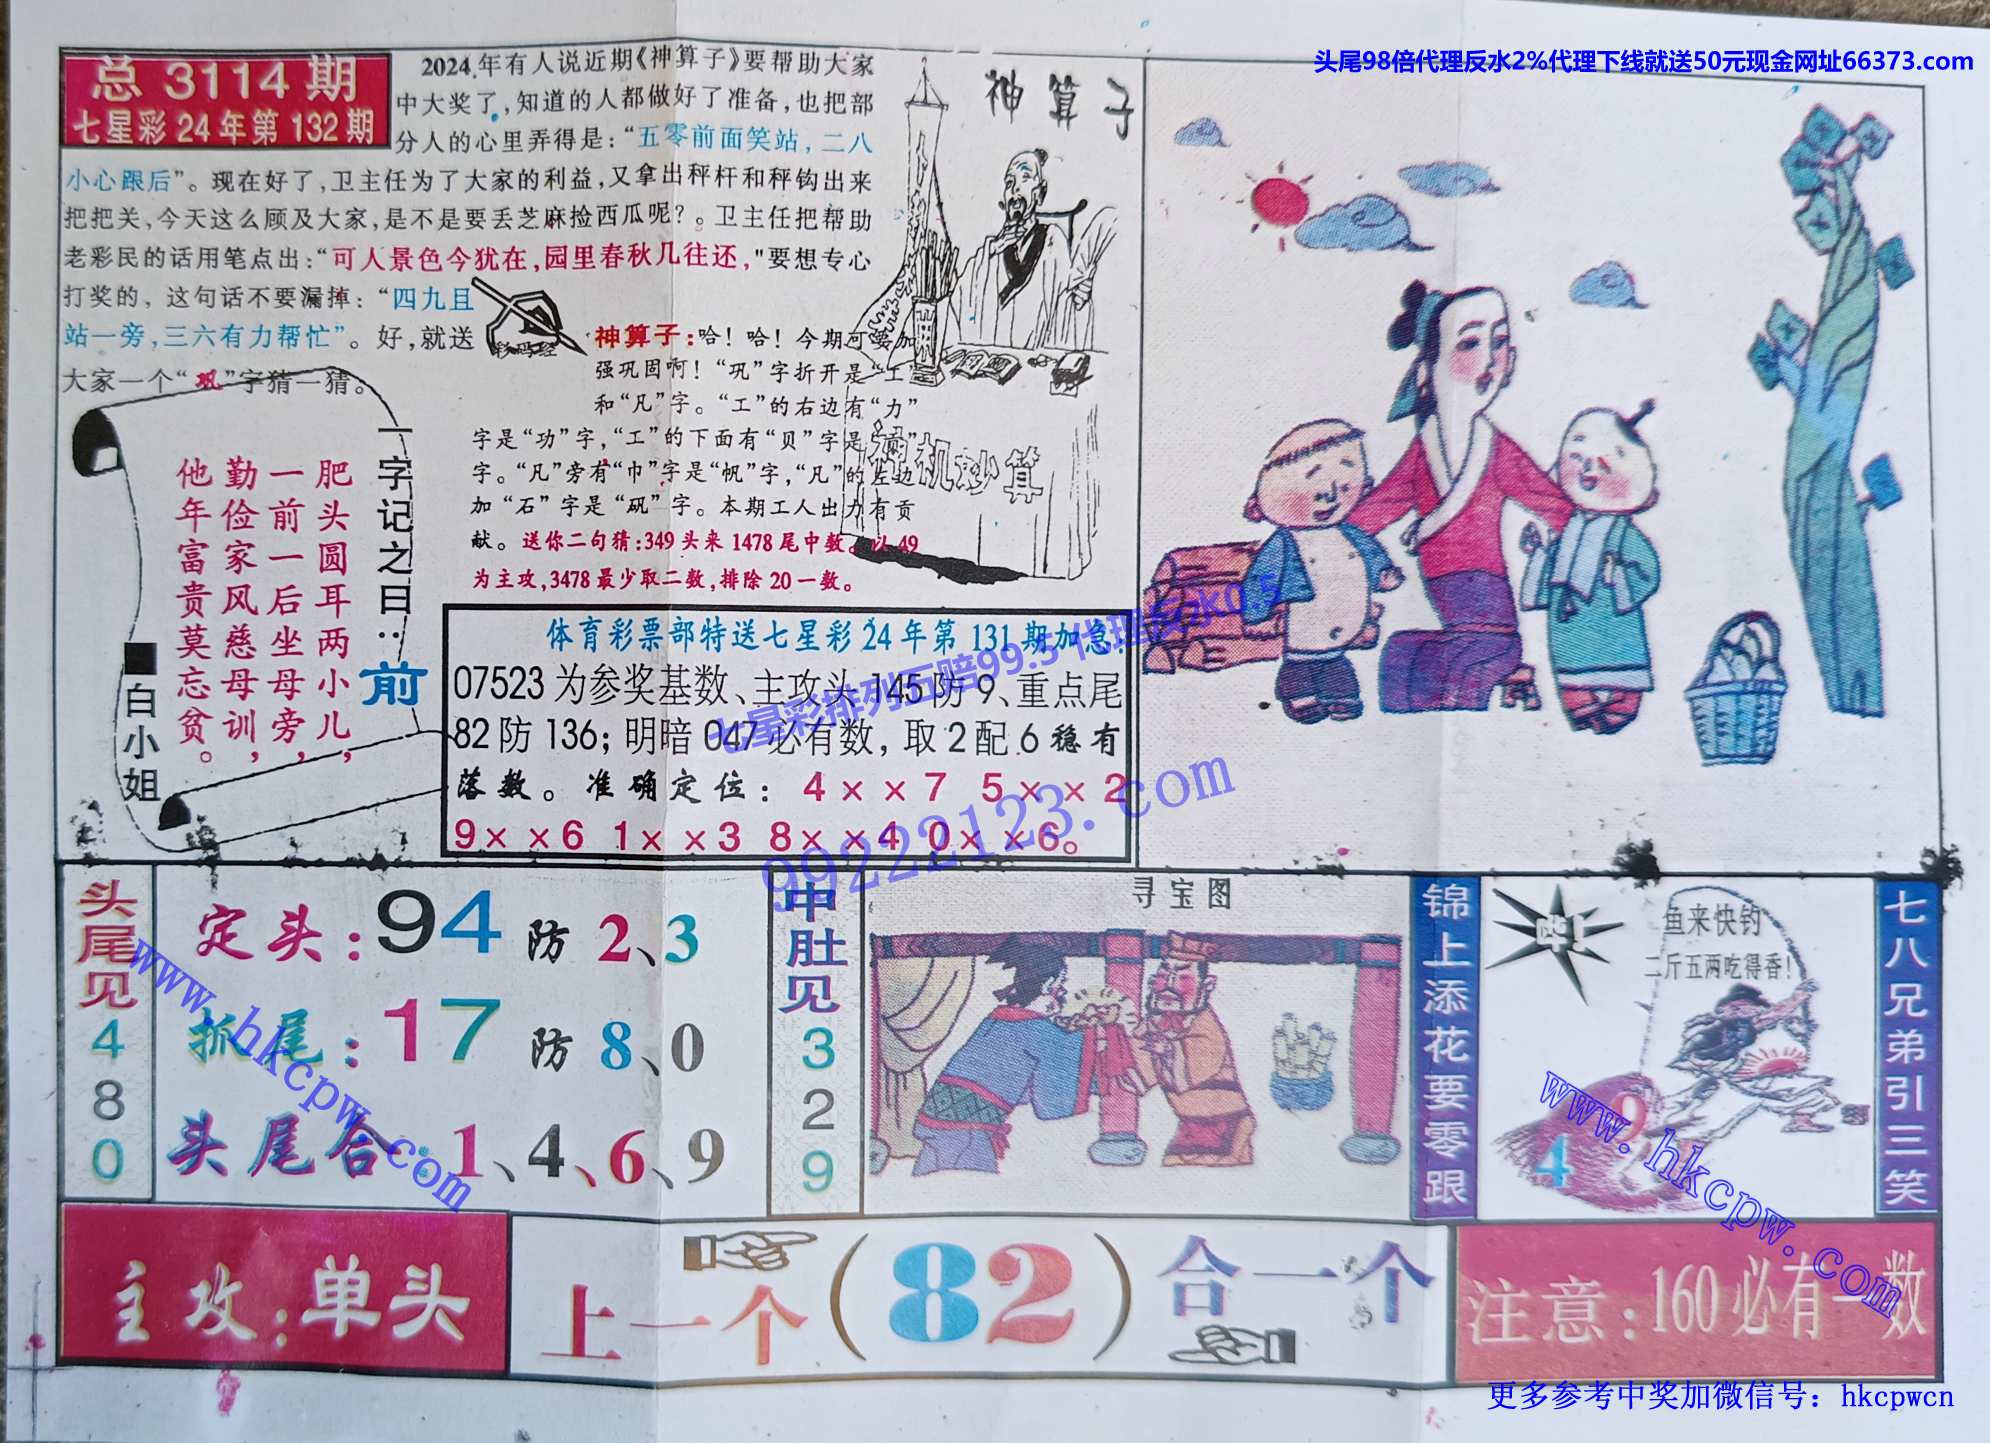 头尾98倍代理反水2%代理下线就送50元现金网址66373.com
总 3114 期
七星彩 24 年第 132 期
2024年有人说近期《神算子》要帮助大家
中大奖了,知道的人都做好了准备,也把部
分人的心里弄得是:“五零前面笑站,二八
小心跟后”。现在好了,卫主任为了大家的利益,又拿出秤杆和秤钩出来
把把关,今天这么顾及大家,是不是要丢芝麻捡西瓜呢?。卫主任把帮助
老彩民的话用笔点出:“可人景色今犹在,园里春秋几往还,"要想专心
打奖的,这句话不要漏掉:“四九且
站一旁,三六有力帮忙”。好,就送
大家一个“巩”字猜一猜。
彩码经
神算子
神算子:哈!哈!今期可要加
强巩固啊!“巩”字折开是“工”
和“凡”字。“工”的右边有“力”
字是“功”字,“工”的下面有“贝”字是
字。“凡”旁有“巾”字是“帆”字,“凡”的左边
加“石”字是“矾”字。本期工人出力有贡
献。送你二句猜:349头来1478尾中数。以49
为主攻,3478最少取二数,排除20一数。
神机妙算
一字记之曰:前
肥头圆耳两小儿,
一前一后坐母旁,
勤俭家风慈母训,
他年富贵莫忘贫。
■白小姐
体育彩票部特送七星彩24年第131期加急:
07523为参奖基数、主攻头145防9、重点尾
82防136;明暗047必有数,取2配6稳有
落数。准确定位:4××7 5××2
9××6 1××3 8××4 0××6。
七星彩排列五赔99.5代理反水0.5
99222123.com
头尾见480
定头:94防2、3
抓尾:17防8、0
头尾合1、4、6、9
www.hkcpw.com
中肚见329
寻宝图
锦上添花要零跟
鱼来快钓
二斤五两吃得香!
9
4
2
www.hkcpw.com
七八兄弟引三笑
主攻:单头
上一个(82)合一个
注意:160必有一数
更多参考中奖加微信号:hkcpwcn